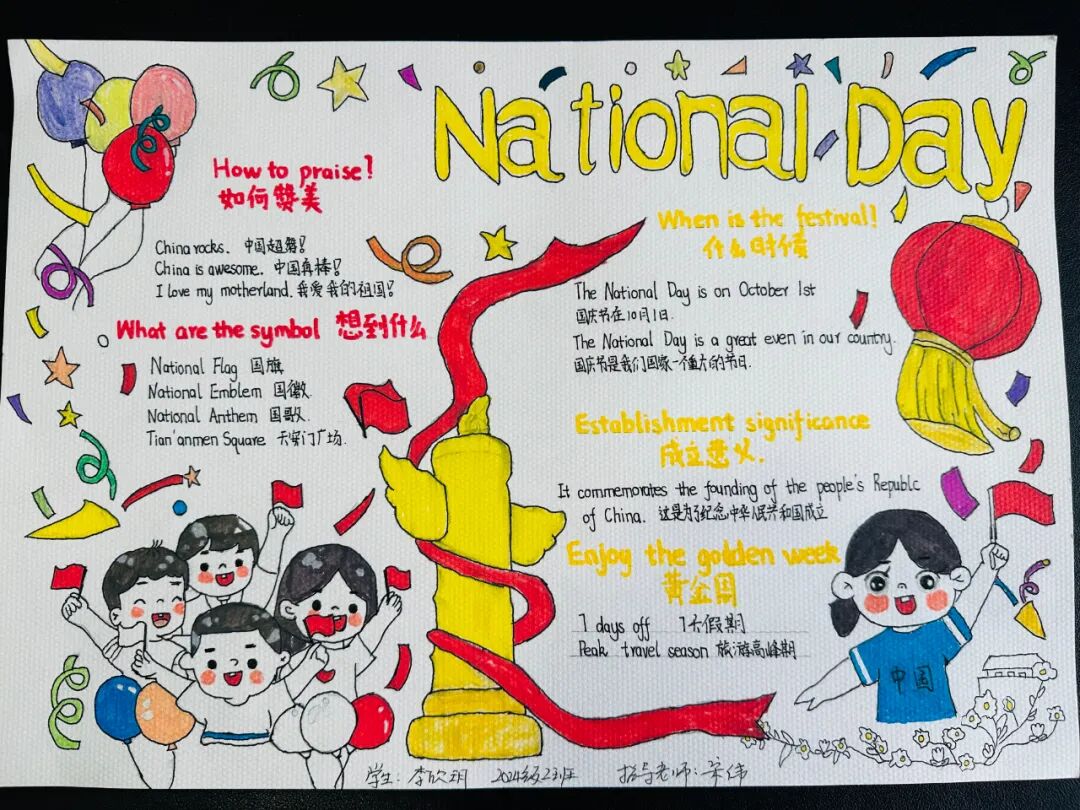 National Day
How to praise!
如何赞美
China rocks. 中国超赞!
China is awesome. 中国真棒!
I love my motherland. 我爱我的祖国!
What are the symbol 想到什么
National Flag 国旗
National Emblem 国徽.
National Anthem 国歌.
Tian'anmen Square 天安门广场.
When is the festival!
什么时候
The National Day is on October 1st
国庆节在10月1日.
The National Day is a great even in our country.
国庆节是我们国家一个重大的节日.
Establishment significance
成立意义.
It commemorates the founding of the people's Republc
of China. 这是为了纪念中华人民共和国成立
Enjoy the golden week
黄金周
7 days off 7天假期
Peak travel season 旅游高峰期
中国
学生: 李欣玥 2024级23班 指导老师: 宋伟